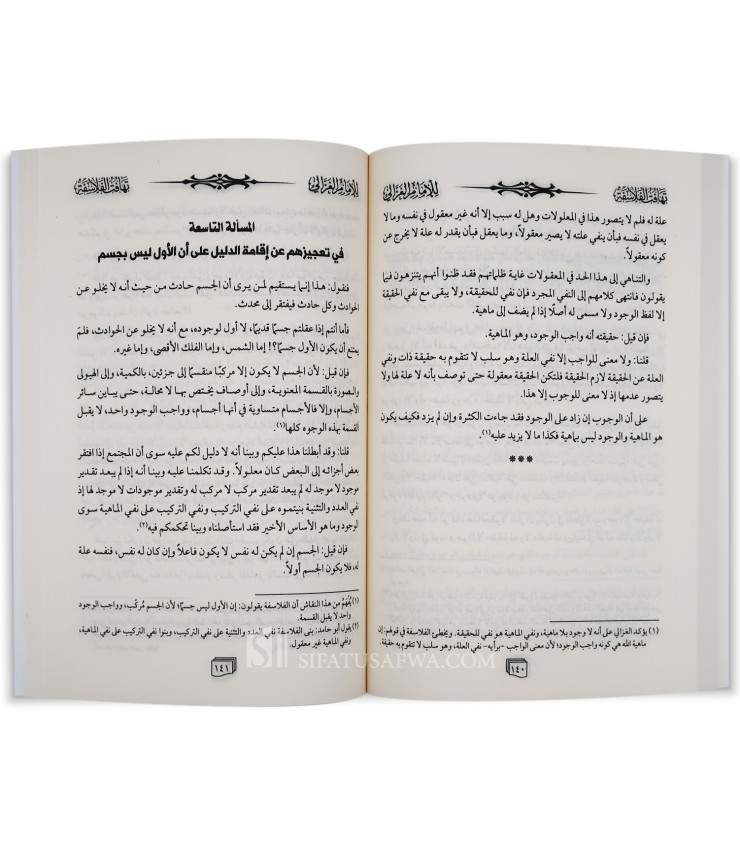 تهافت الفلاسفة
للإمام الغزالي
علة له فلم لا يتصور هذا في المعلولات وهل له سبب إلا أنه غير معقول في نفسه وما لا
يعقل في نفسه فبأن ينفي علته لا يصير معقولاً، وما يعقل فبأن يقدر له علة لا يخرج عن
كونه معقولاً.
والتناهي إلى هذا الحد في المعقولات غاية ظلماتهم فقد ظنوا أنهم يتنزهون فيما
يقولون فانتهى كلامهم إلى النفي المجرد فإن نفي للحقيقة، ولا يبقى مع نفي الحقيقة
إلا لفظ الوجود ولا مسمى له أصلًا إذا لم يضف إلى ماهية.
فإن قيل: حقيقته أنه واجب الوجود، وهو الماهية.
قلنا: ولا معنى للواجب إلا نفي العلة وهو سلب لا تتقوم به حقيقة ذات ونفي
العلة عن الحقيقة لازم الحقيقة فلتكن الحقيقة معقولة حتى توصف بأنه لا علة لها ولا
يتصور عدمها إذ لا معنى للوجوب إلا هذا.
على أن الوجوب إن زاد على الوجود فقد جاءت الكثرة وإن لم يزد فكيف يكون
هو الماهية والوجود ليس بماهية فكذا ما لا يزيد عليه(١).
***
(١) يؤكد الغزالي على أنه لا وجود بلا ماهية، ونفي الماهية هو نفي للحقيقة. ويخطئ الفلاسفة في قولهم: إن
ماهية الله هي كونه واجب الوجود؛ لأن معنى الواجب -برأيه- نفي العلة، وهو سلب لا تتقوم به حقيقة.
١٤٠
تهافت الفلاسفة
للإمام الغزالي
المسألة التاسعة
في تعجيزهم عن إقامة الدليل على أن الأول ليس بجسم
فنقول: هذا إنما يستقيم لمن يرى أن الجسم حادث من حيث أنه لا يخلو عن
الحوادث وكل حادث فيفتقر إلى محدث.
فأما أنتم إذا عقلتم جسمًا قديمًا، لا أول لوجوده، مع أنه لا يخلو عن الحوادث، فلِمَ
يمتنع أن يكون الأول جسمًا؟! إما الشمس، وإما الفلك الأقصى، وإما غيره.
فإن قيل: لأن الجسم لا يكون إلا مركبًا منقسمًا إلى جزئين، بالكمية، وإلى الهيولى
والصورة بالقسمة المعنوية، وإلى أوصاف يختص بها لا محالة، حتى يباين سائر
الأجسام، وإلا فالأجسام متساوية في أنها أجسام، وواجب الوجود واحد، لا يقبل
القسمة بهذه الوجوه كلها(١).
قلنا: وقد أبطلنا هذا عليكم وبينا أنه لا دليل لكم عليه سوى أن المجتمع إذا افتقر
بعض أجزائه إلى البعض كان معلولاً. وقد تكلمنا عليه وبينا أنه إذا لم يبعد تقدير
موجود لا موجد له لم يبعد تقدير مركب لا مركب له وتقدير موجودات لا موجد لها إذ
نفي العدد والتثنية بنيتموه على نفي التركيب ونفي التركيب على نفي الماهية سوى
الوجود وما هو الأساس الأخير فقد استأصلناه وبينا تحكمكم فيه(٢).
فإن قيل: الجسم إن لم يكن له نفس لا يكون فاعلاً وإن كان له نفس، فنفسه علة
له، فلا يكون الجسم أولاً.
(١) يُفهم من هذا النقاش أن الفلاسفة يقولون: إن الأول ليس جسمًا؛ لأن الجسم مُركّب، وواجب الوجود
واحد لا يقبل القسمة.
(٢) يقول أبو حامد: بنى الفلاسفة نفي العدد والتثنية على نفي التركيب، وبنوا نفي التركيب على نفي الماهية،
ونفي الماهية غير معقول.
١٤١
SIFATUSAFWA.COM